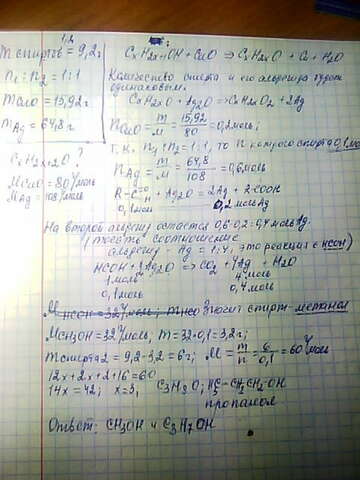 1,2
m спиртов = 9,2 г
n₁ : n₂ = 1:1
m CuO = 15,92 г
m Ag = 64,8 г
CxH2x+2O ?
M CuO = 80 г/моль
M Ag = 108 г/моль
CxH2x+1OH + CuO ⇒ CxH2xO + Cu + H2O
Количество спирта и его альдегида будут
одинаковыми.
CxH2xO + Ag2O ⇒ CxH2xO2 + 2Ag
n CuO = m/M = 15,92/80 = 0,2 моль;
т.к. n₁ : n₂ = 1:1, то n каждого спирта 0,1 моль
n Ag = m/M = 64,8/108 = 0,6 моль
+ Ag2O = 2Ag + R-COOH
0,1 моль 0,2 моль Ag
На второй альдегид остаётся 0,6-0,2=0,4 моль Ag.
соотношение
альдегид : Ag = 1:4, это реакция с HCOH)
HCOH + 2Ag2O ⇒ CO2 + 4Ag + H2O
1 моль 4 моль
0,1 моль 0,4 моль
Значит спирт - метанол
M CH3OH = 32 г/моль, m = 32·0,1 = 3,2 г;
m спирта 2 = 9,2-3,2 = 6 г; M = m/n = 6/0,1 = 60 г/моль
12x+2x+2+16=60
14x = 42; x=3, C3H8O; H3C-CH2CH2-OH
пропанол
Ответ: CH3OH и C3H7OH